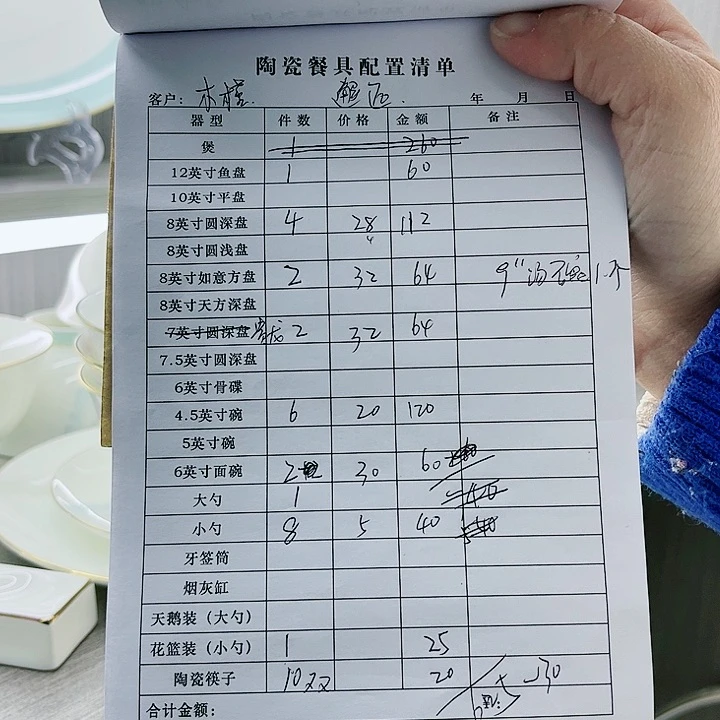 陶瓷餐具配置清单
客户: 木槿 年 月 日
器型 件数 价格 金额 备注
煲 1 260
12英寸鱼盘 1 60
10英寸平盘
8英寸圆深盘 4 28 112
8英寸圆浅盘
8英寸如意方盘 2 32 64 9"汤 1个
8英寸天方深盘
7英寸圆深盘 2 32 64
7.5英寸圆深盘
6英寸骨碟
4.5英寸碗 6 20 120
5英寸碗
6英寸面碗 2 30 60
大勺 1
小勺 8 5 40
牙签筒
烟灰缸
天鹅装（大勺）
花篮装（小勺） 1 25
陶瓷筷子 10双 20
合计金额: